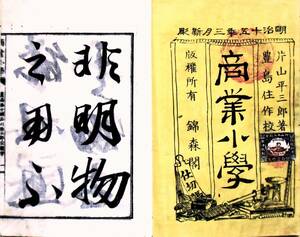 明治十五年三月新版
片山平三郎著
豊島住作校
商業小學
版權所有
錦森閣
非明物
之用不